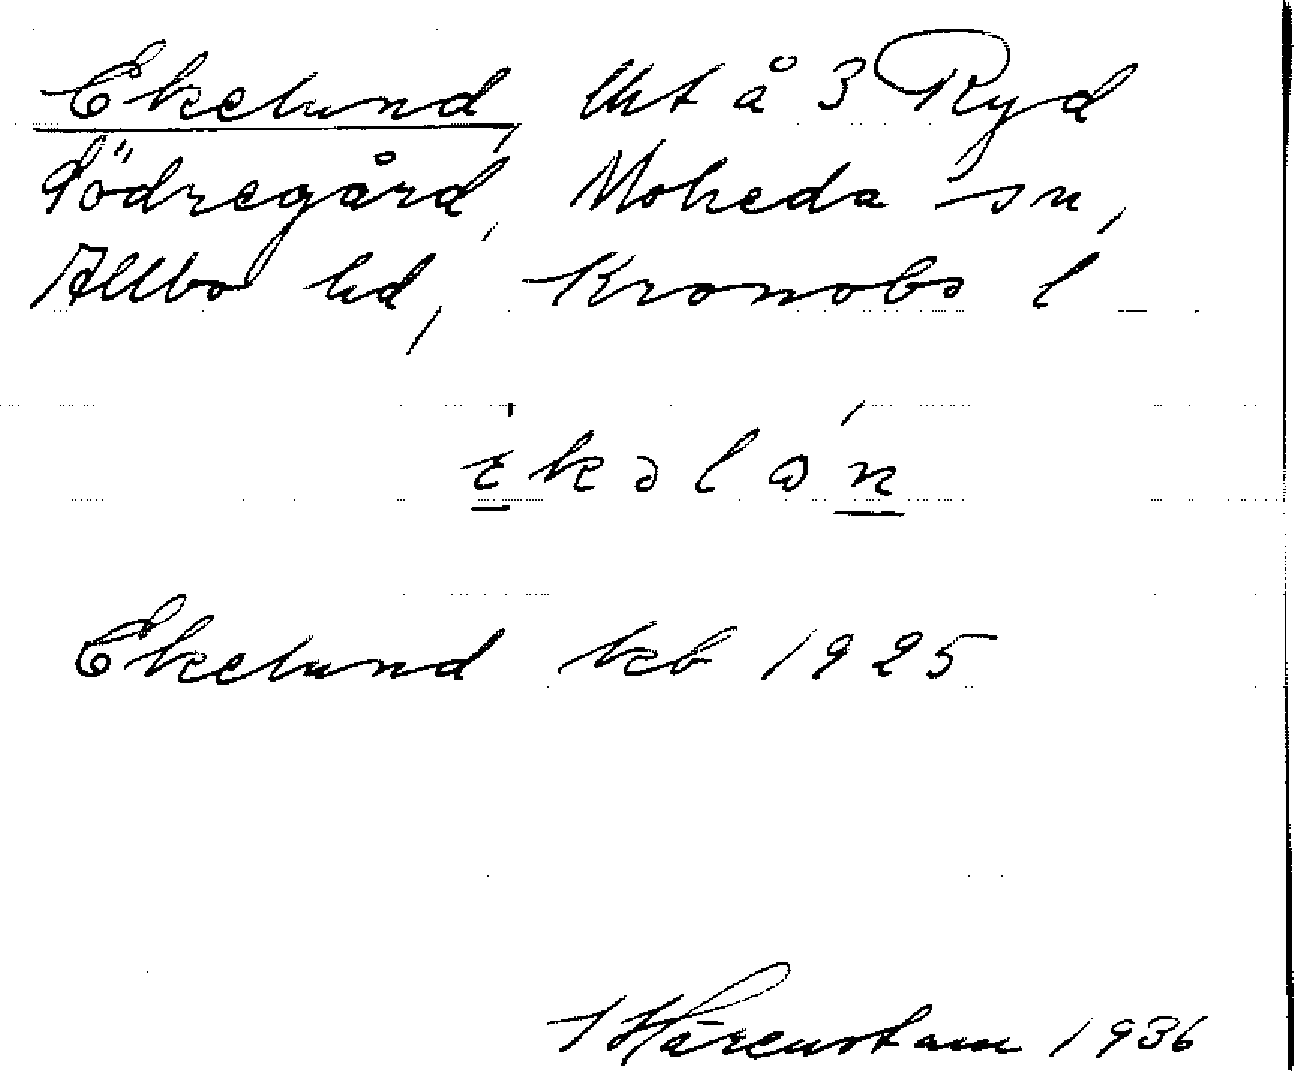 Ekelund, Utt å 3 Ryd
Södregård, Moheda sn,
Allbo hd, Kronobs l
ɛ̀kəlón
Ekelund kb 1925
I Härenstam 1936